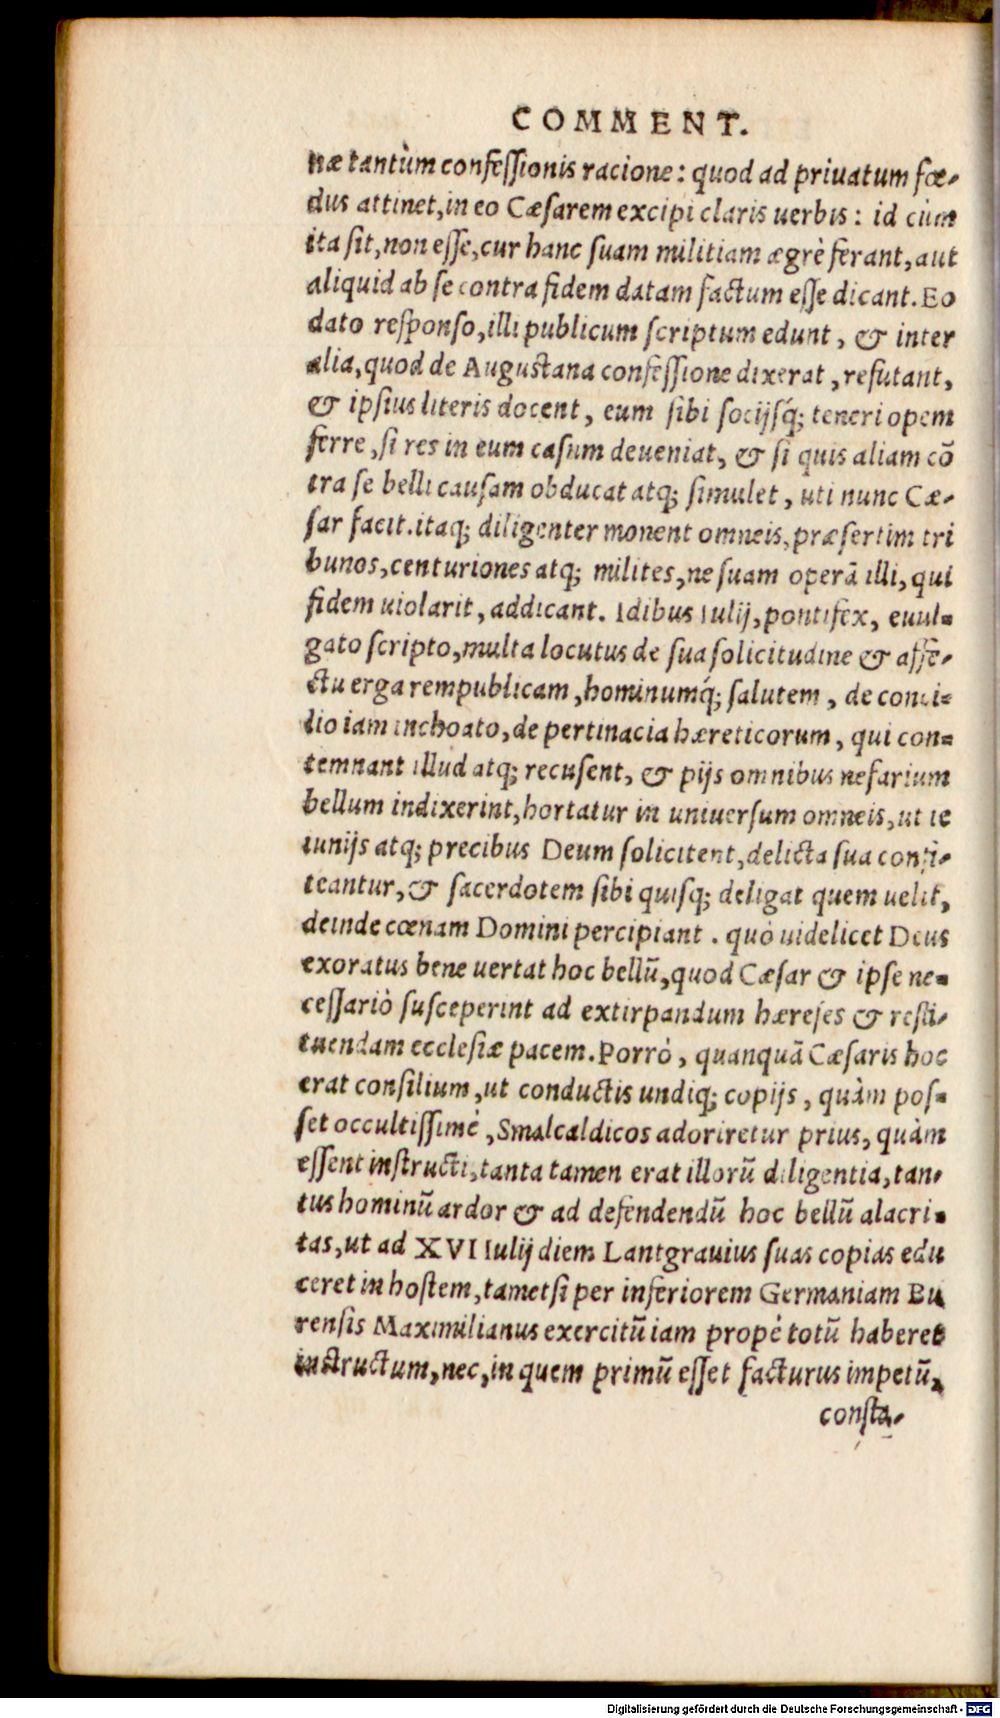 COMMENT.
næ tantùm confeſſionis racione: quod ad priuatum fœ-
dus attinet, in eo Cæſarem excipi claris uerbis: id cùm
ita ſit, non eſſe, cur hanc ſuam militiam ægrè ferant, aut
aliquid ab ſe contra fidem datam factum eſſe dicant. Eo
dato reſponſo, illi publicum ſcriptum edunt, & inter
alia, quod de Auguſtana confeſſione dixerat, refutant,
& ipſius literis docent, eum ſibi ſocijsq́; teneri opem
ferre, ſi res in eum caſum deueniat, & ſi quis aliam cō
tra ſe belli cauſam obducat atq; ſimulet, uti nunc Cæ-
ſar facit. itaq; diligenter monent omneis, præſertim tri
bunos, centuriones atq; milites, ne ſuam operā illi, qui
fidem uiolarit, addicant. Idibus Iulij, pontifex, euul-
gato ſcripto, multa locutus de ſua ſolicitudine & affe-
ctu erga rempublicam, hominumq́; ſalutem, de conci-
lio iam inchoato, de pertinacia hæreticorum, qui con-
temnant illud atq; recuſent, & pijs omnibus nefarium
bellum indixerint, hortatur in uniuerſum omneis, ut ie
iunijs atq; precibus Deum ſolicitent, delicta ſua confi-
teantur, & ſacerdotem ſibi quiſq; deligat quem uelit,
deinde cœnam Domini percipiant. quò uidelicet Deus
exoratus bene uertat hoc bellū, quod Cæſar & ipſe ne-
ceſſariò ſuſceperint ad extirpandum hæreſes & reſti-
tuendam eccleſiæ pacem. Porrò, quanquā Cæſaris hoc
erat conſilium, ut conductis undiq; copijs, quàm poſ-
ſet occultiſſimè, Smalcaldicos adoriretur prius, quàm
eſſent inſtructi, tanta tamen erat illorū diligentia, tan-
tus hominū ardor & ad defendendū hoc bellū alacri-
tas, ut ad XVI Iulij diem Lantgrauius ſuas copias edu
ceret in hoſtem, tametſi per inferiorem Germaniam Bu
renſis Maximilianus exercitū iam propè totū haberet
inſtructum, nec, in quem primū eſſet facturus impetū,
conſta-
Digitalisierung gefördert durch die Deutsche Forschungsgemeinschaft - DFG